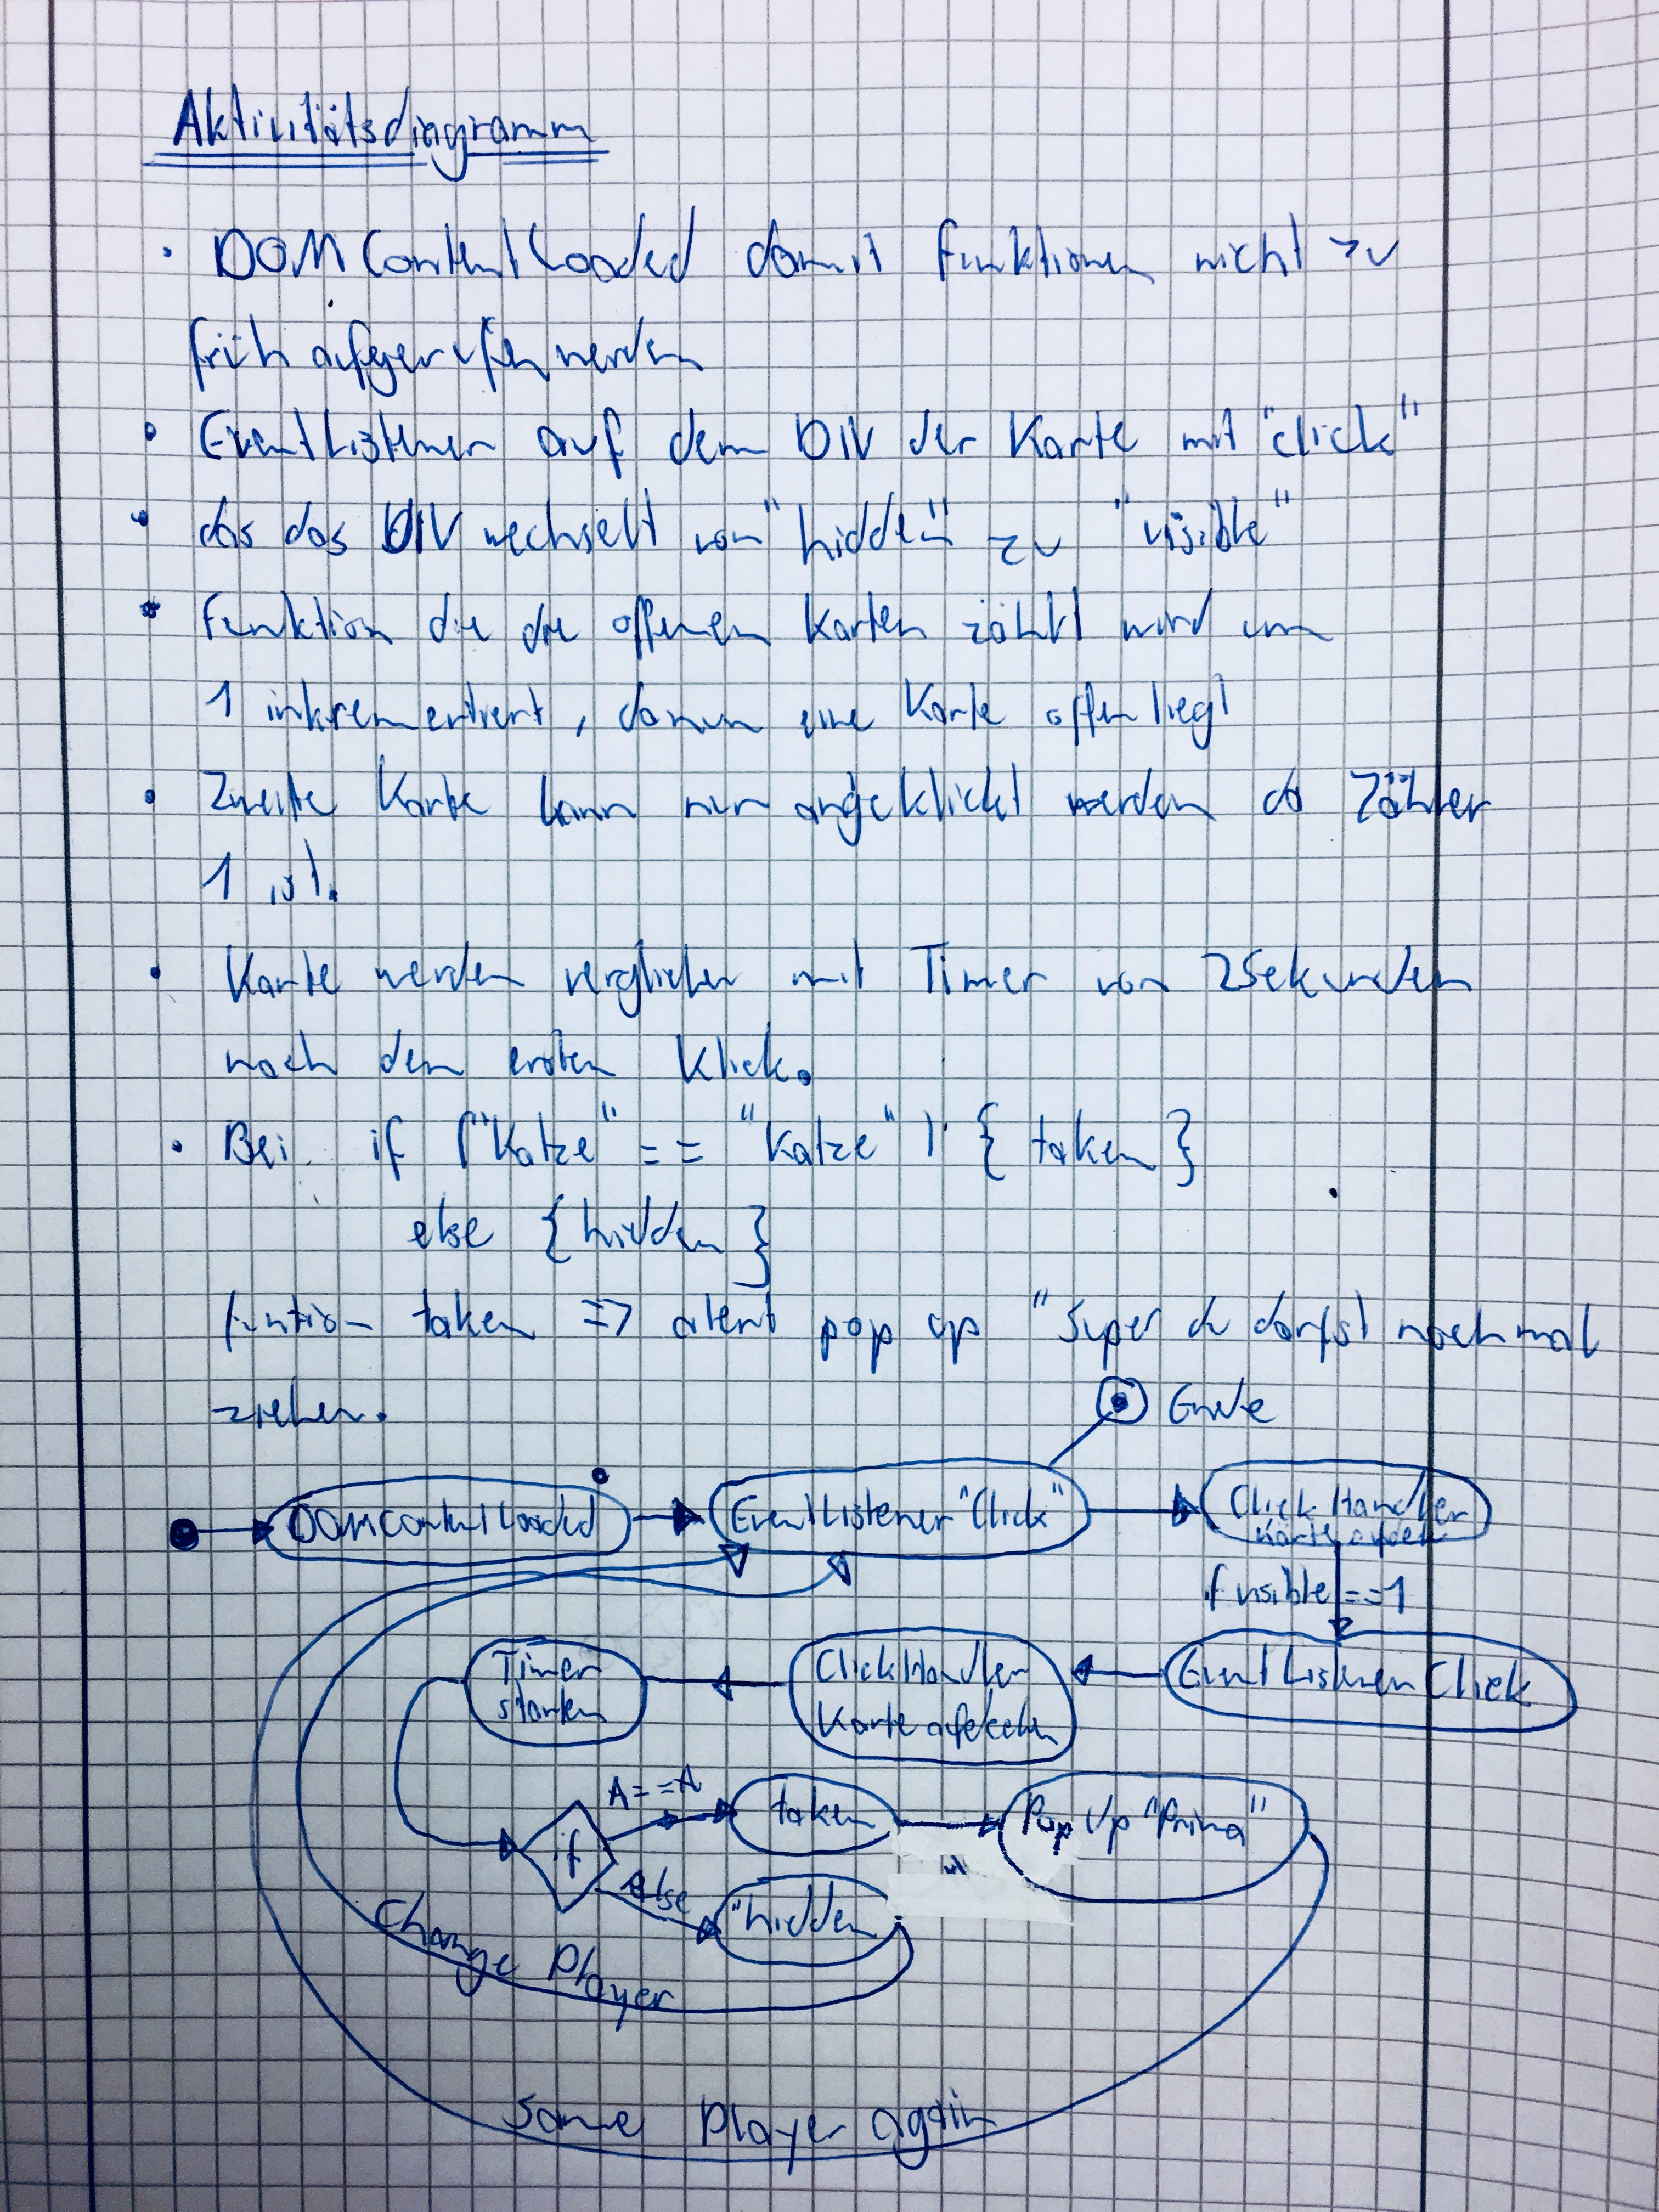 Aktivitätsdiagramm
• DOMContentLoaded damit Funktionen nicht zu
früh aufgerufen werden
• EventListener auf dem DIV der Karte mit "click"
• das das DIV wechselt von "hidden" zu "visible"
• Funktion die die offenen Karten zählt wird um
1 inkrementiert, wenn eine Karte offen liegt
• Zweite Karte kann nur angeklickt werden da Zähler
1 ist.
• Karte werden verglichen mit Timer von 2Sekunden
nach dem ersten Klick.
• Bei if ("Katze" == "Katze") { taken }
else { hidden }
funtion taken => alert pop up "Super du darfst nochmal
ziehen.
Ende
DOMContentLoaded
EventListener "Click"
ClickHandler
Karte aufdeck
if visible == 1
Timer
starten
ClickHandler
Karte aufdecken
EventListener Click
A==A
taken
Pop Up "Prima"
if
else
"hidden
Change Player
Same Player again